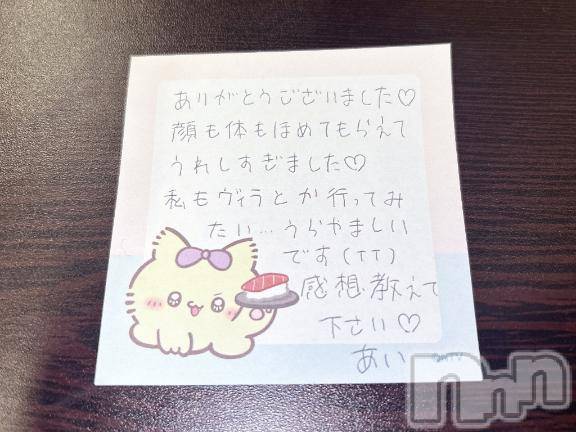 ありがとうございました♡
顔も体もほめてもらえて
うれしすぎました♡
私もヴィラとか行ってみ
たい…うらやましい
です(TT)
感想教えて
下さい♡
あい
nnn